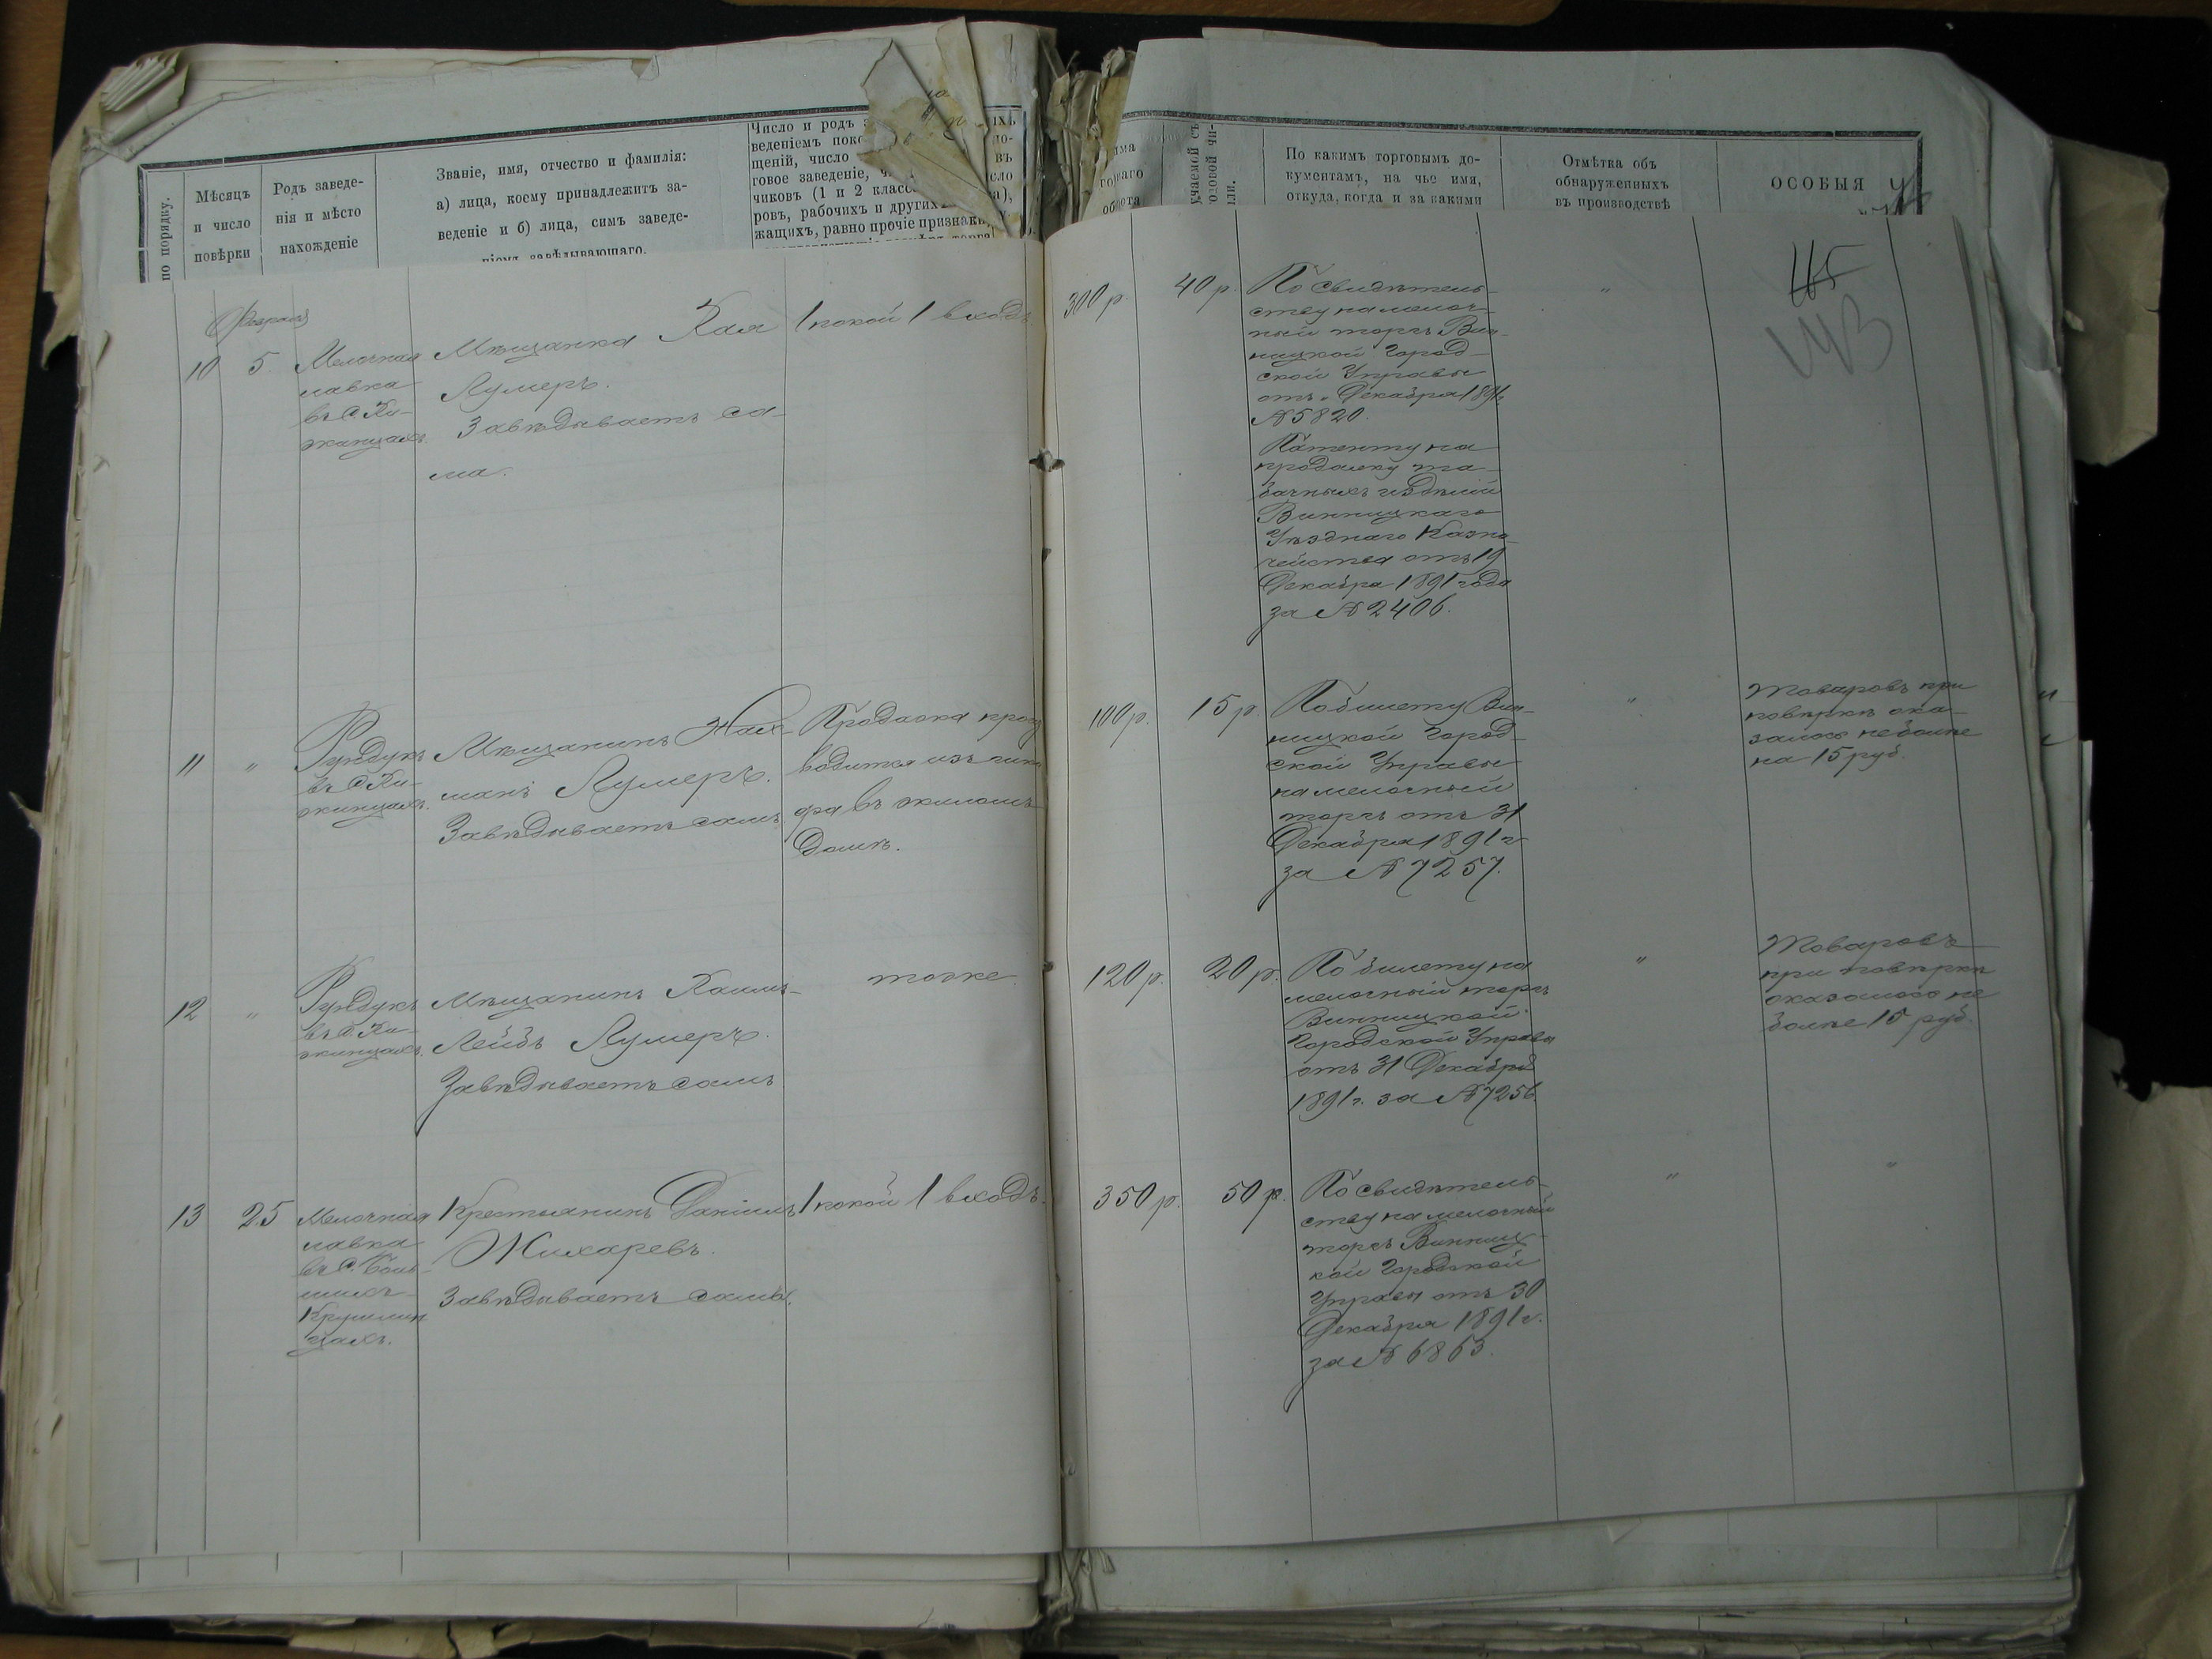 по порядку.
Мѣсяцъ
и число
повѣрки
Родъ заведе-
нія и мѣсто
нахожденіе
Званіе, имя, отчество и фамилія:
а) лица, коему принадлежитъ за-
веденіе и б) лица, симъ заведе-
ніемъ завѣдывающаго.
Число и родъ
веденіемъ
щеній, число
говое заведеніе,
чиковъ (1 и 2
ровъ, рабочихъ и другихъ
жащихъ, равно прочіе признаки,
По какимъ торговымъ до-
кументамъ, на чье имя,
откуда, когда и за какими
Отмѣтка объ
обнаруженныхъ
въ производствѣ
ОСОБЫЯ
Февраль
10
5.
Мелочная
лавка
въ с. Ки-
Мѣщанка Хая
Лумеръ.
Завѣдываетъ са-
ма.
1 покой 1 входъ
300 р.
40 р.
По свидѣтель-
ству на мелоч-
ный торгъ Вин-
ницкой Город-
ской Управы
отъ „ Декабря 1891 г.
№ 5820.
Патенту на
продажу та-
бачныхъ издѣлій
Винницкаго
Уѣзднаго Казна-
чейства отъ 19
Декабря 1891 года
за № 2406.
"
11
"
Рундукъ
въ с. Ки-
Мѣщанинъ Нах-
манъ Лумеръ.
Завѣдываетъ самъ.
Продажа произ
водится изъ шка
фа въ жиломъ
домѣ.
100 р.
15 р.
По билету Вин-
ницкой Город-
ской Управы
на мелочный
торгъ отъ 31
Декабря 1891 г.
за № 7257.
"
Товаровъ при
повѣркѣ ока-
залось не болѣе
на 15 руб.
12
"
Рундукъ
въ с. Ки-
Мѣщанинъ
Лейбъ Лумеръ.
Завѣдываетъ самъ
тоже.
120 р.
20 р.
По билету на
мелочный торгъ
Винницкой
Городской Управы
отъ 31 Декабря
1891 г. за № 7256.
"
Товаровъ
при повѣркѣ
оказалось не
болѣе 15 руб.
13
25
Мелочная
лавка
въ с. Боль-
шихъ
Крушлин
цахъ.
Крестьянинъ Даніилъ
Жихаревъ.
Завѣдываетъ самъ.
1 покой 1 входъ.
350 р.
50 р.
По свидѣтель-
ству на мелочный
торгъ Винниц-
кой Городской
Управы отъ 30
Декабря 1891 г.
за № 6863.
"
"